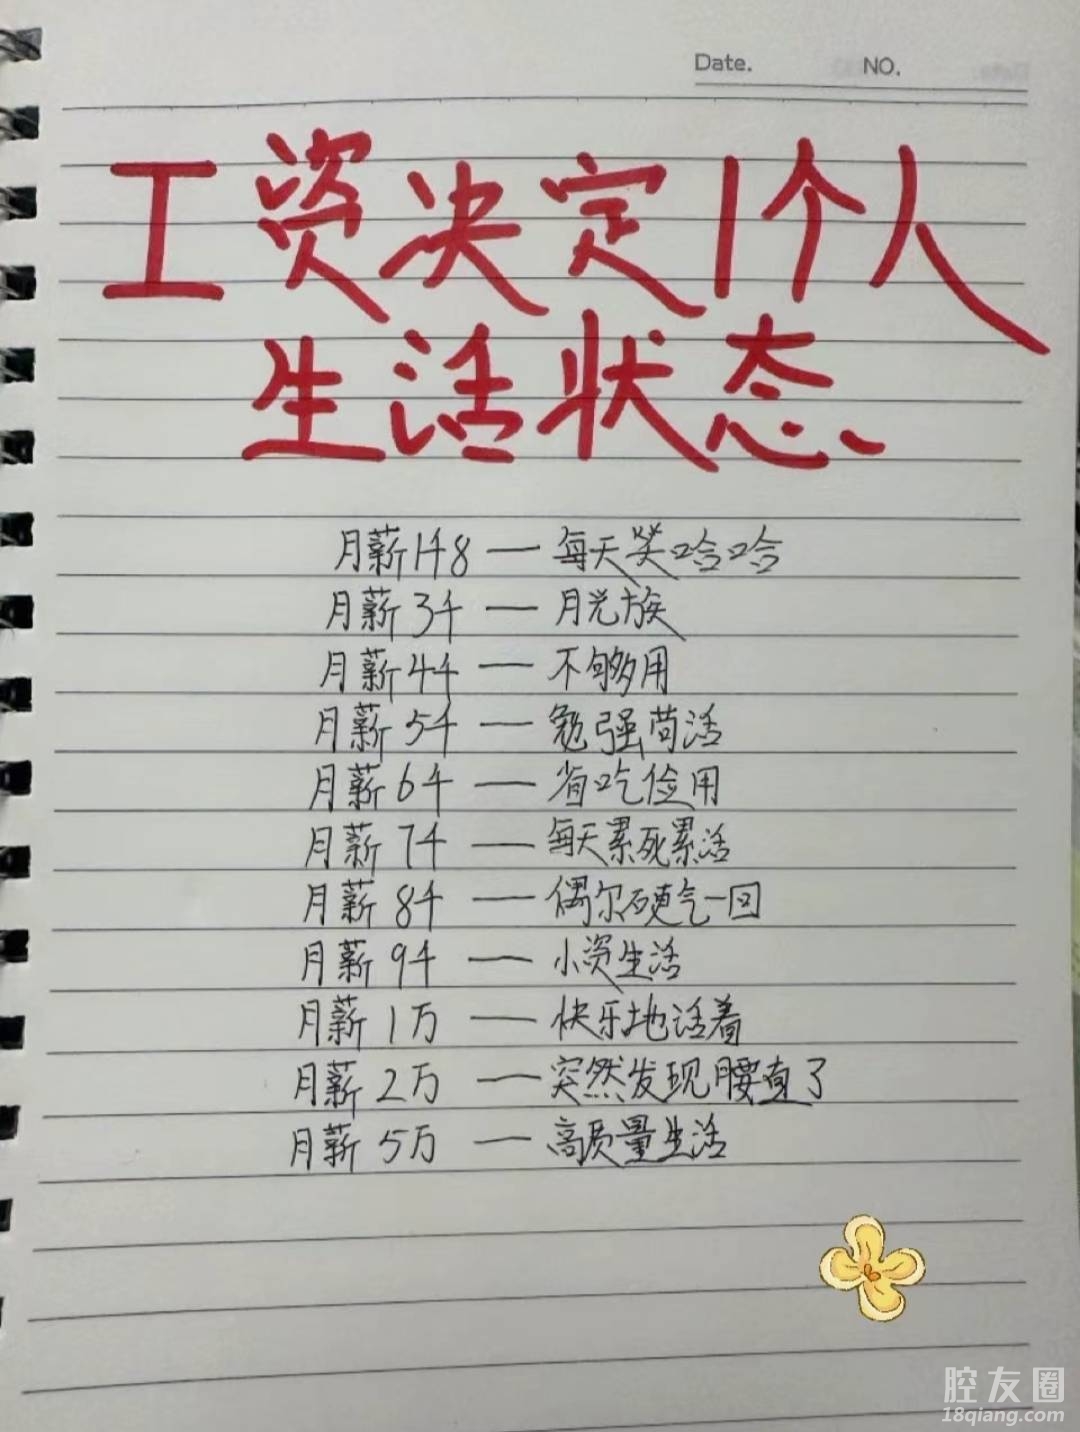 Date.
NO.
工资决定1个人
生活状态
月薪1千8 — 每天笑哈哈
月薪3千 — 月光族
月薪4千 — 不够用
月薪5千 — 勉强苟活
月薪6千 — 省吃俭用
月薪7千 — 每天累死累活
月薪8千 — 偶尔硬气一回
月薪9千 — 小资生活
月薪1万 — 快乐地活着
月薪2万 — 突然发现腰直了
月薪5万 — 高质量生活
腔友圈
18qiang.com